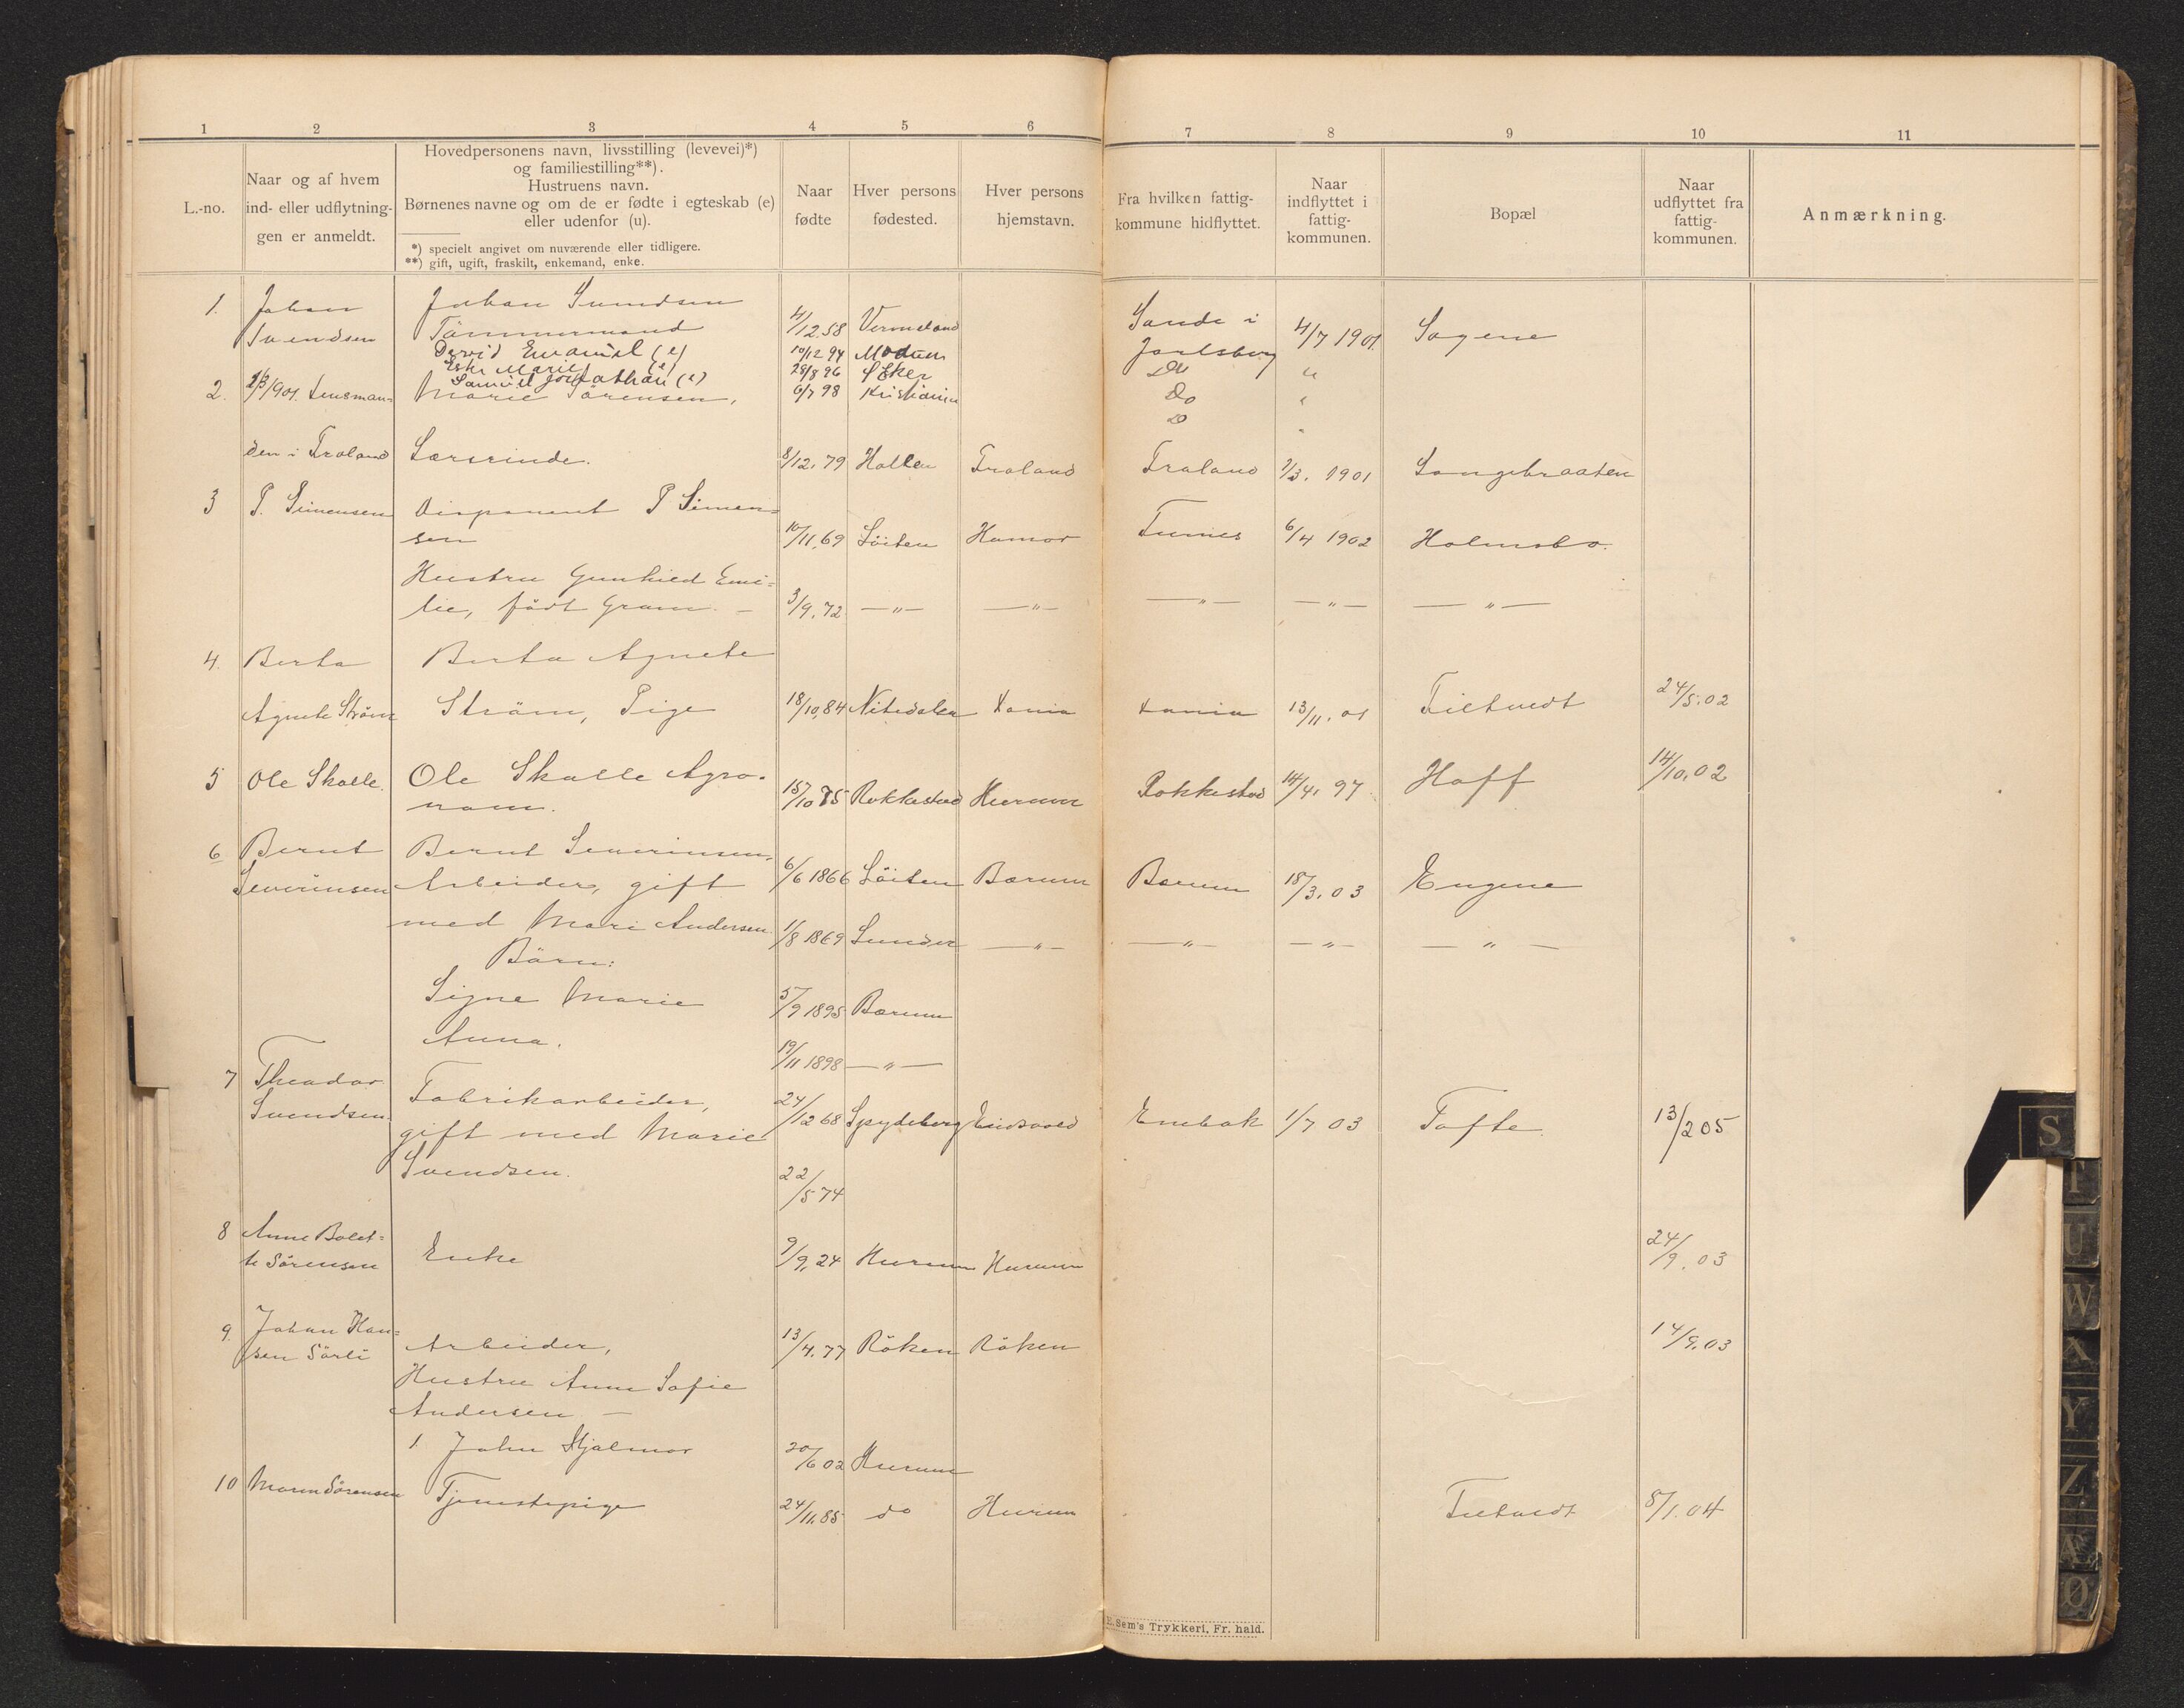 1 2 3 4 5 6 7 8 9 10 11
L.-no.
Naar og af hvem
ind- eller udflytnin-
gen er anmeldt.
Hovedpersonens navn, livsstilling (levevei)*)
og familiestilling**).
Hustruens navn.
Børnenes navne og om de er fødte i egteskab (e)
eller udenfor (u).
*) specielt angivet om nuværende eller tidligere.
**) gift, ugift, fraskilt, enkemand, enke.
Naar
fødte
Hver persons
fødested.
Hver persons
hjemstavn.
Fra hvilken fattig-
kommune hidflyttet.
Naar
indflyttet i
fattig-
kommunen.
Bopæl
Naar
udflyttet fra
fattig-
kommunen.
Anmærkning.
1. Johan Johan Svendsen
Svendsen Tömmermand 4/12 58 Vermeland Sande i Jarlsberg 4/7 1901 Sagene
David Emanuel (e) 10/12 94 Modum Do "
Ester Marie (e) 28/8 96 Eker Do "
Samuel Jonathan (e) 6/7 98 Kristiania Do "
2. 2/3/901. Lensman- Marie Sörensen,
den i Froland Lærerinde. 8/12. 79 Holten Froland Froland 2/3. 1901 Langebraaten
3 P. Simensen Disponent P Simen-
sen 10/11.69 Löiten Hamar Furnes 6/4 1902 Holmsbo.
Hustru Gunhild Emi-
lie, født Gram. — 3/9.72 —"— —"— —"— —"— —"—
4. Berta Berta Agnete
Agnete Ström Ström, Pige 18/10.84 Nitedalen Xania Xania 13/11. 01 Filtvedt 24/5.02
5 Ole Skolle. Ole Skolle Agro-
nom. 15/10 75 Rakkestad Hurum Rakkestad 14/4. 97 Hoff 14/10.02
6 Bernt Bernt Severinsen,
Severinsen Arbeider, gift 6/6 1866 Löiten Bærum Bærum 18/3.03 Engene
med Mari Andersen 1/8 1869 Sunder —"— —"— —"— —"—
Börn:
Signe Marie 5/9 1895 Bærum
Anna. 19/11 1898 —"—
7 Theodor
Svendsen. Fabrikarbeider, 24/12 68 Spydeberg Eidsvold Enebak 1/7 03 Tofte 13/2 05
gift med Marie
Svendsen. 22/5 74
8 Anne Bolet-
te Sörensen Enke 9/9.24 Hurum Hurum 24/9.03
9. Johan Han-
sen Sörli Arbeider, 13/4.77 Röken Röken 14/9.03
Hustru Anne Sofie
Andersen —
1. John Hjalmar 20/6 02 Hurum
10 Maren Sörensen Tjenestepige 24/11.85 do Hurum Filtvedt 8/1.04
E. Sem's Trykkeri, Fr. hald.
S
T
U
W
X
Y
Z
Æ
Ø